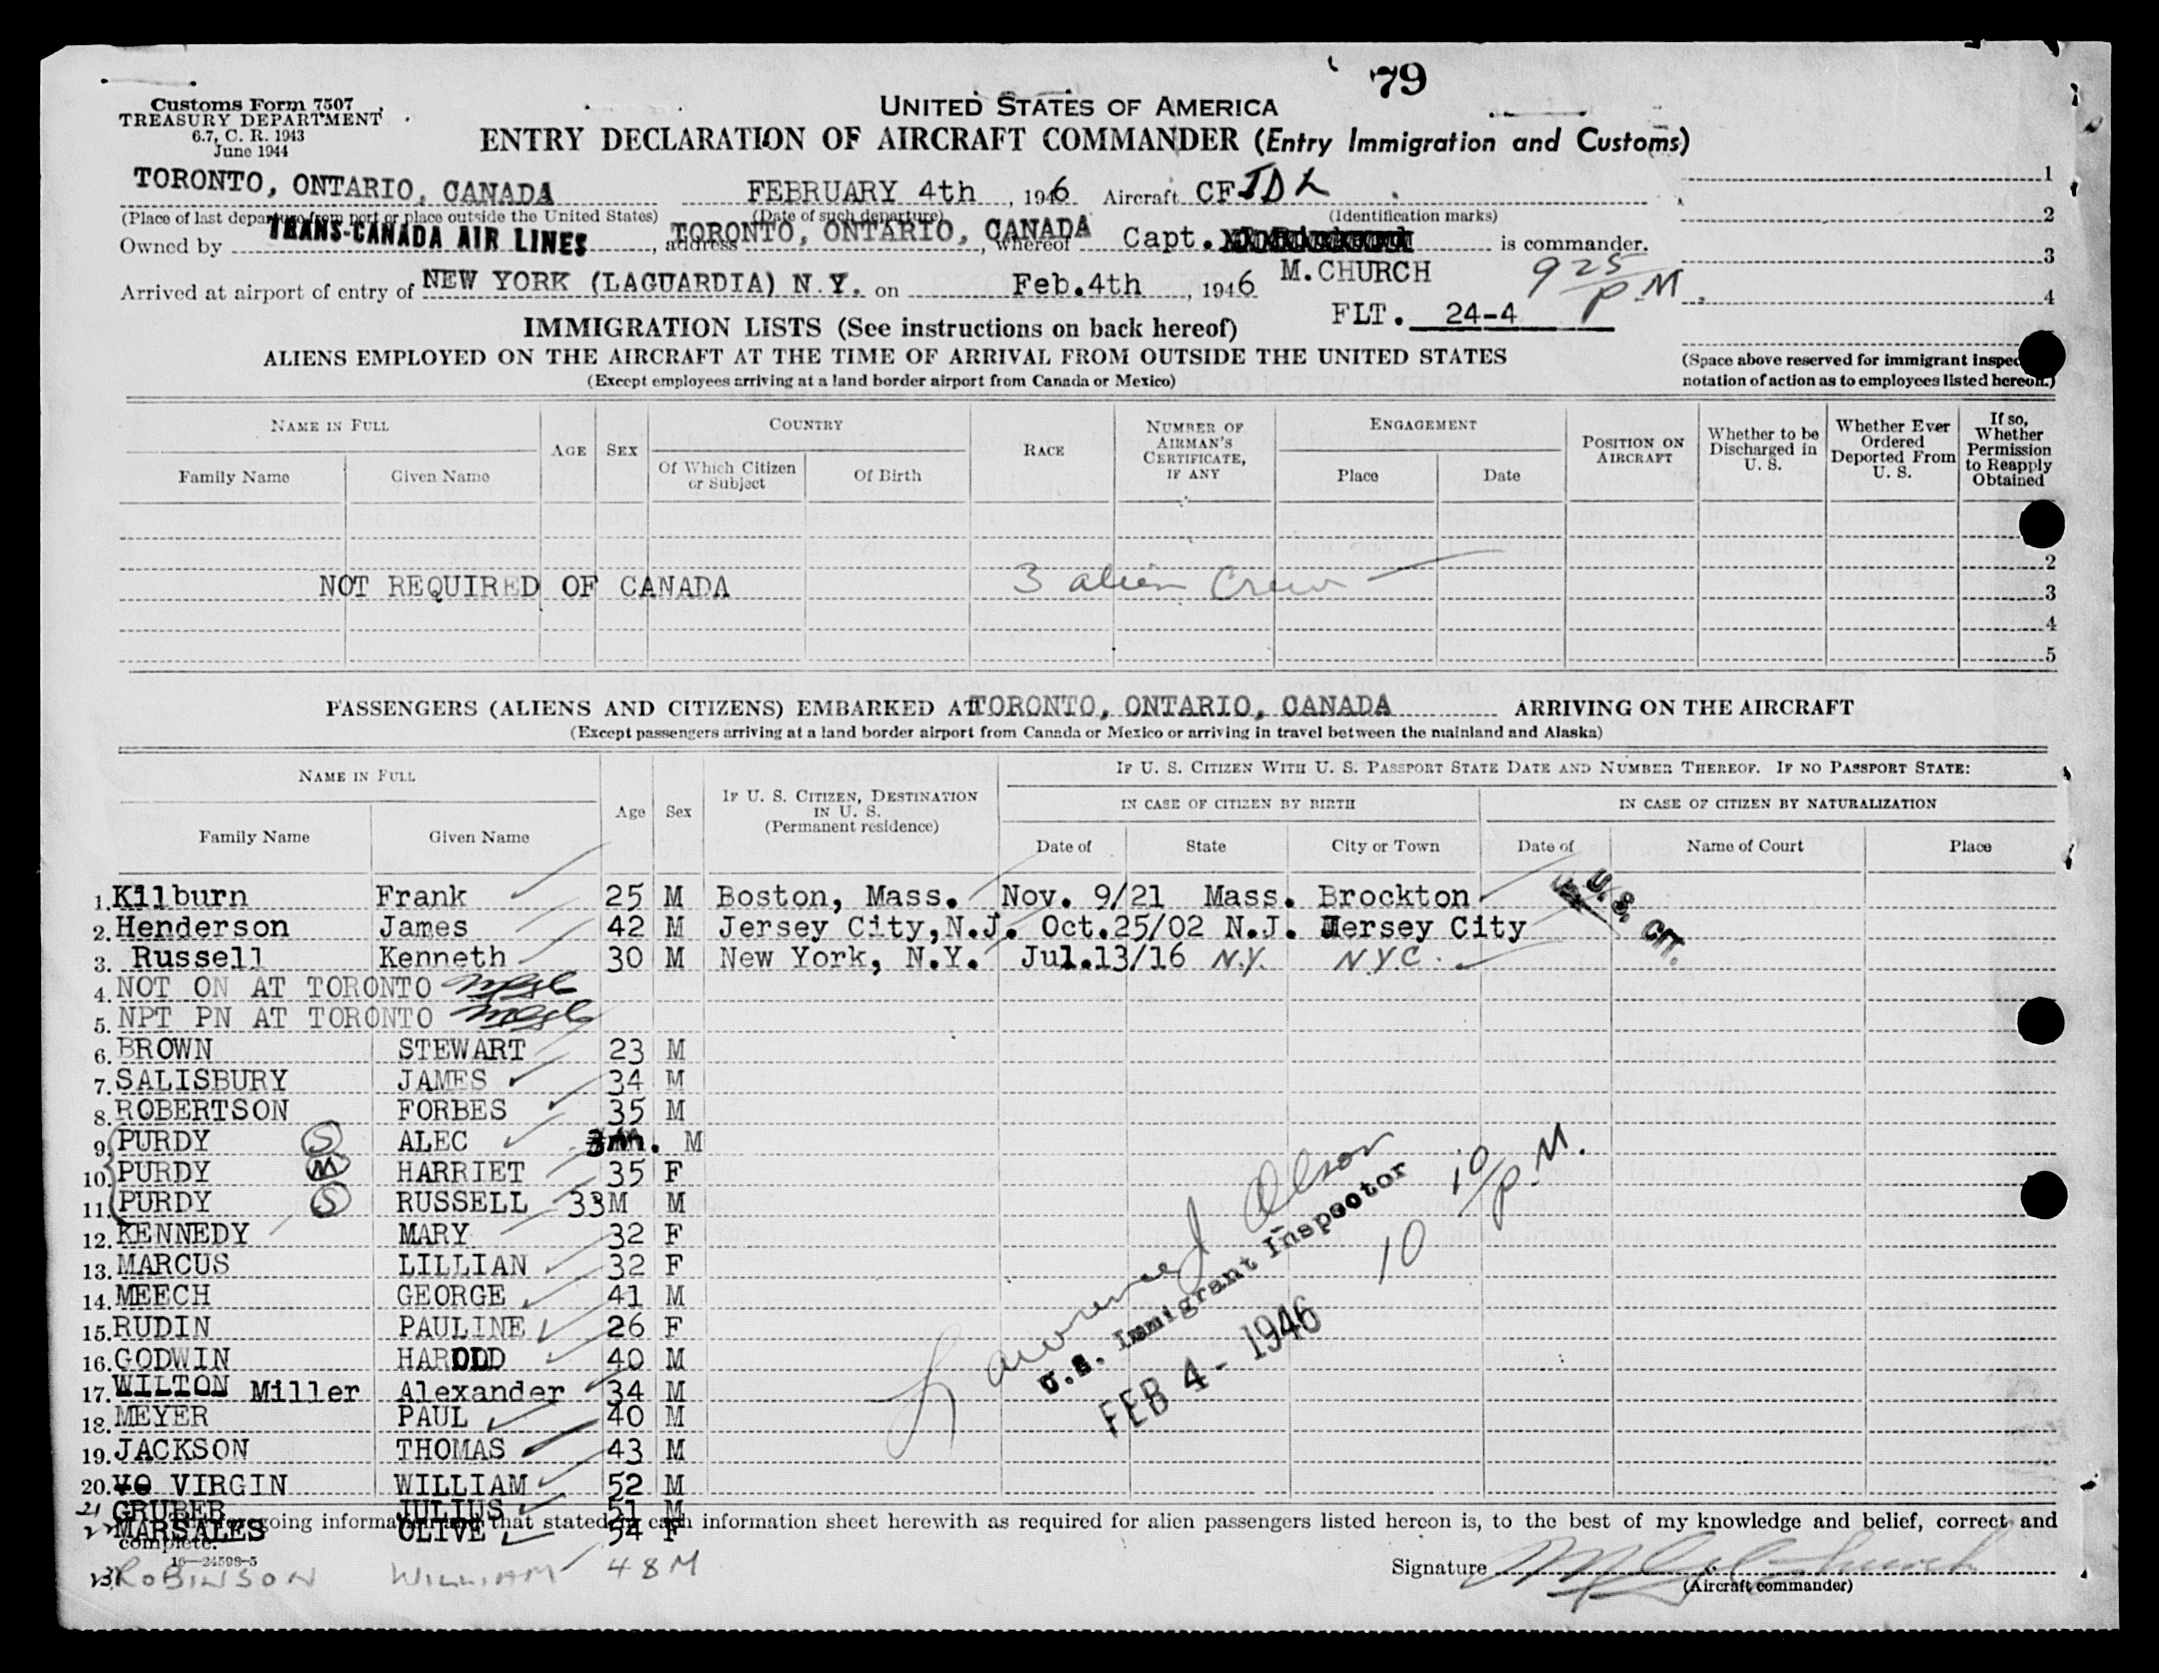 79
Customs Form 7507
TREASURY DEPARTMENT
6.7, C. R. 1943
June 1944
UNITED STATES OF AMERICA
ENTRY DECLARATION OF AIRCRAFT COMMANDER (Entry Immigration and Customs)
TORONTO, ONTARIO, CANADA FEBRUARY 4th, 1946 Aircraft CF TDL
(Place of last departure from port or place outside the United States) (Date of such departure) (Identification marks)
Owned by TRANS-CANADA AIR LINES, address TORONTO, ONTARIO, CANADA, whereof Capt. is commander.
Arrived at airport of entry of NEW YORK (LAGUARDIA) N.Y. on Feb.4th, 1946 M.CHURCH 925 P.M.
FLT. 24-4
1
2
3
4
IMMIGRATION LISTS (See instructions on back hereof)
ALIENS EMPLOYED ON THE AIRCRAFT AT THE TIME OF ARRIVAL FROM OUTSIDE THE UNITED STATES
(Except employees arriving at a land border airport from Canada or Mexico)
(Space above reserved for immigrant inspec
notation of action as to employees listed hereon.)
NAME IN FULL AGE SEX COUNTRY RACE NUMBER OF AIRMAN'S CERTIFICATE, IF ANY ENGAGEMENT POSITION ON AIRCRAFT Whether to be Discharged in U. S. Whether Ever Ordered Deported From U. S. If so, Whether Permission to Reapply Obtained
Family Name Given Name Of Which Citizen or Subject Of Birth Place Date
2
NOT REQUIRED OF CANADA 3 alien Crew 3
4
5
PASSENGERS (ALIENS AND CITIZENS) EMBARKED AT TORONTO, ONTARIO, CANADA ARRIVING ON THE AIRCRAFT
(Except passengers arriving at a land border airport from Canada or Mexico or arriving in travel between the mainland and Alaska)
NAME IN FULL Age Sex IF U. S. CITIZEN, DESTINATION IN U. S. (Permanent residence) IF U. S. CITIZEN WITH U. S. PASSPORT STATE DATE AND NUMBER THEREOF. IF NO PASSPORT STATE:
IN CASE OF CITIZEN BY BIRTH IN CASE OF CITIZEN BY NATURALIZATION
Family Name Given Name Date of State City or Town Date of Name of Court Place
1. Kilburn Frank 25 M Boston, Mass. Nov. 9/21 Mass. Brockton
2. Henderson James 42 M Jersey City, N.J. Oct.25/02 N.J. Jersey City
3. Russell Kenneth 30 M New York, N.Y. Jul.13/16 N.Y. N.Y.C.
U. S. CIT.
4. NOT ON AT TORONTO
5. NPT PN AT TORONTO
6. BROWN STEWART 23 M
7. SALISBURY JAMES 34 M
8. ROBERTSON FORBES 35 M
9. PURDY S ALEC M
10. PURDY M HARRIET 35 F
11. PURDY S RUSSELL 33M M
12. KENNEDY MARY 32 F
13. MARCUS LILLIAN 32 F
14. MEECH GEORGE 41 M
15. RUDIN PAULINE 26 F
16. GODWIN HARODD 40 M
17. WILTON Miller Alexander 34 M
18. MEYER PAUL 40 M
19. JACKSON THOMAS 43 M
20. VIRGIN WILLIAM 52 M
21 GRUBER JULIUS 51 M
22 MARSALES OLIVE 54 F
Lawrence J Olson
U.S. Immigrant Inspector
FEB 4 - 1946
10 10 P.M.
going information that stated in each information sheet herewith as required for alien passengers listed hereon is, to the best of my knowledge and belief, correct and
complete.
16-24598-5
23 ROBINSON WILLIAM 48 M
Signature
(Aircraft commander)